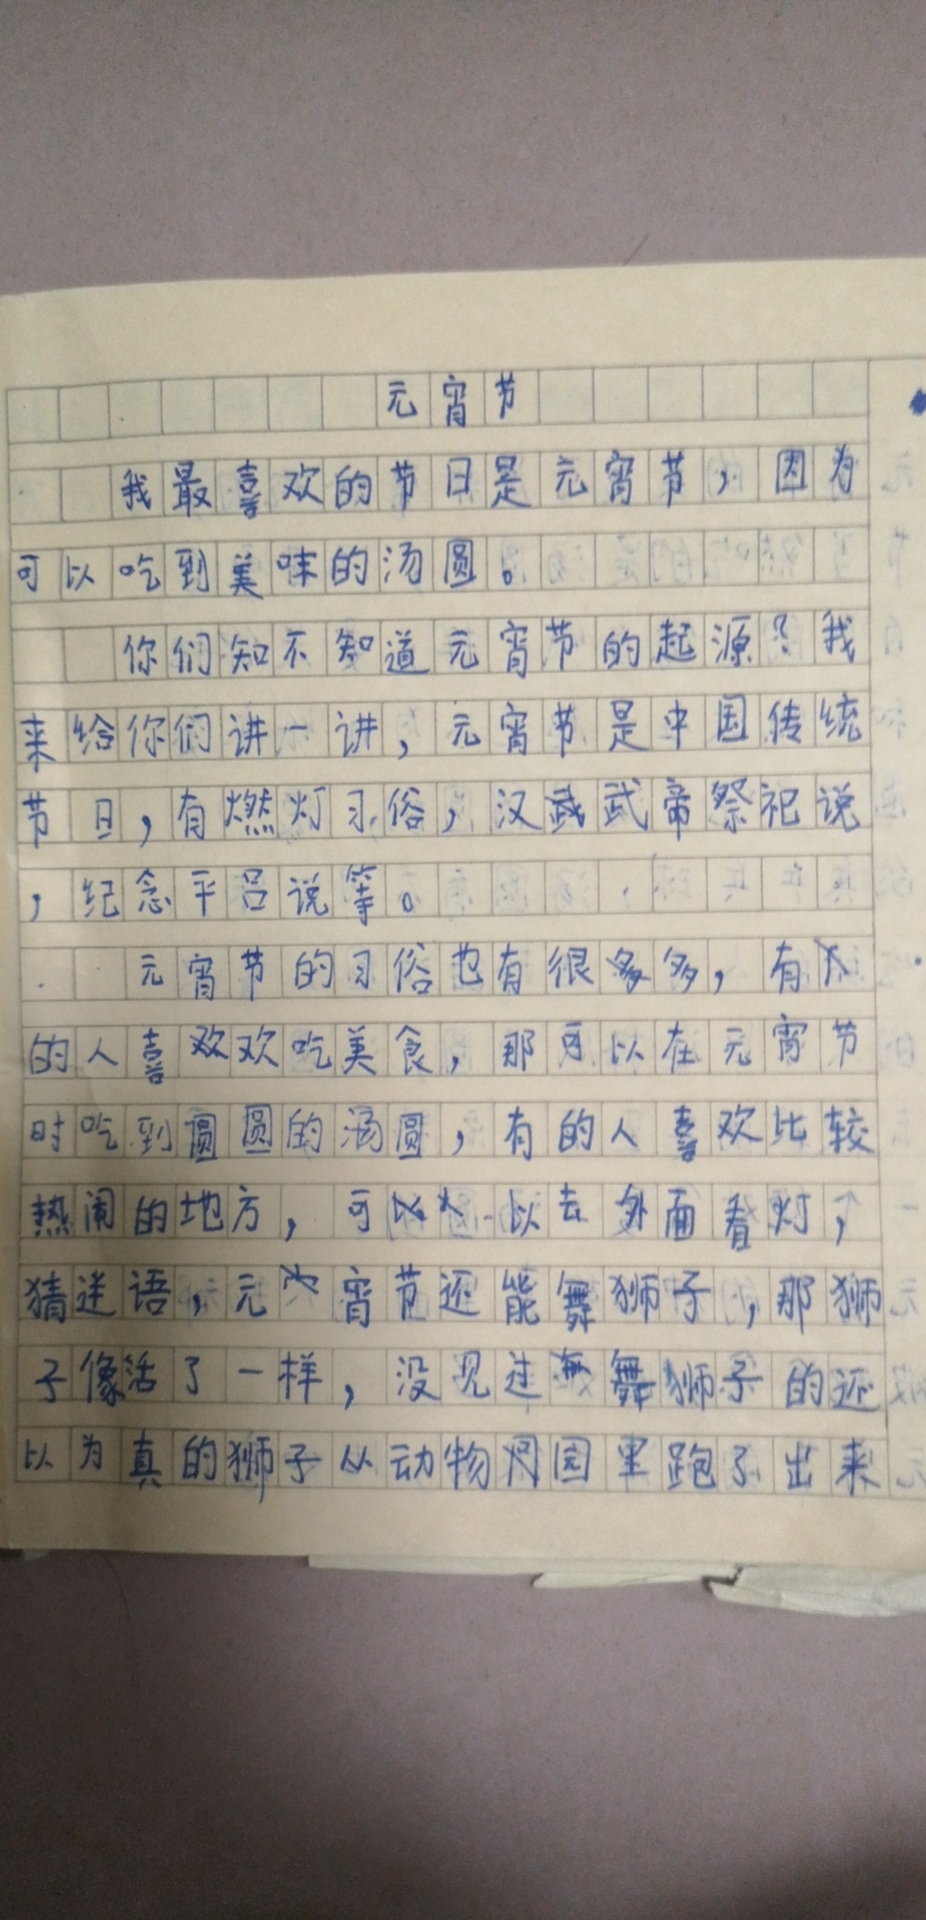 元宵节
我最喜欢的节日是元宵节，因为
可以吃到美味的汤圆。
你们知不知道元宵节的起源？我
来给你们讲一讲，元宵节是中国传统
节日，有燃灯习俗，汉武帝祭祀说
，纪念平吕说等。
元宵节的习俗也有很多，有
的人喜欢吃美食，那可以在元宵节
时吃到圆圆的汤圆，有的人喜欢比较
热闹的地方，可以去外面看灯，
猜迷语，元宵节还能舞狮子，那狮
子像活了一样，没见过舞狮子的还
以为真的狮子从动物园里跑了出来